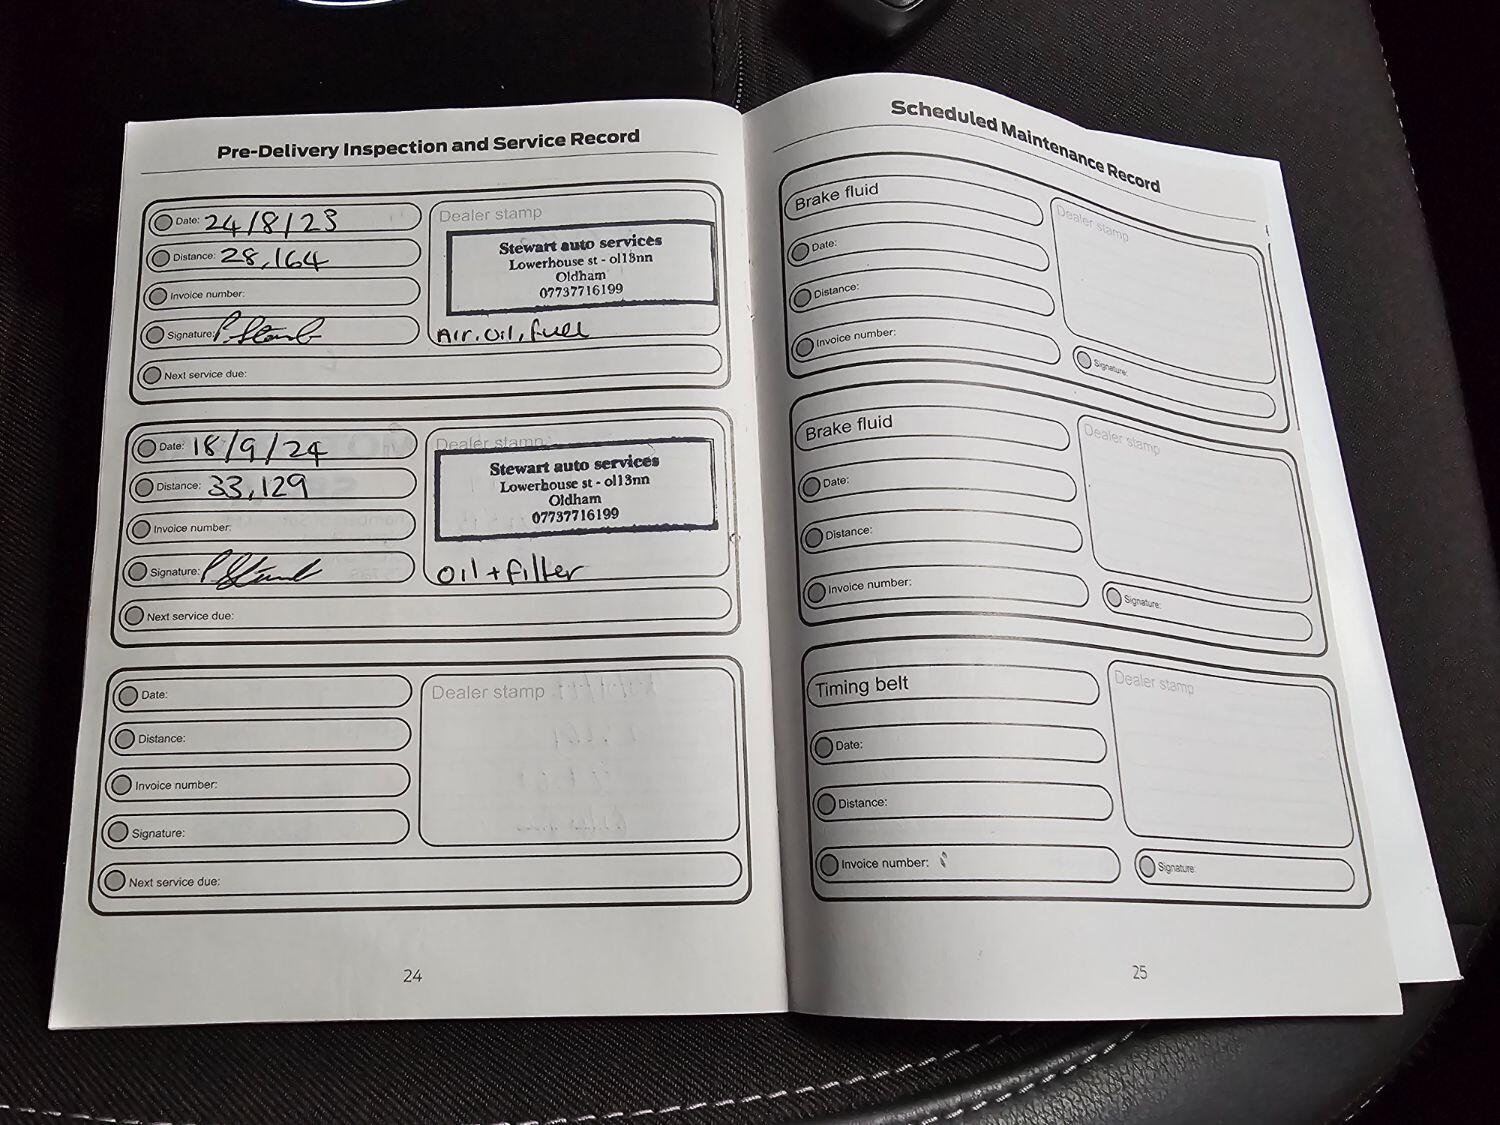 Pre-Delivery Inspection and Service Record
Date: 24/8/23
Distance: 28,164
Invoice number:
Signature:
Dealer stamp
Stewart auto services
Lowerhouse st - ol13nn
Oldham
07737716199
Air, oil, fuel
Next service due:
Date: 18/9/24
Distance: 33,129
Invoice number:
Signature:
Dealer stamp
Stewart auto services
Lowerhouse st - ol13nn
Oldham
07737716199
oil + filter
Next service due:
Date:
Distance:
Invoice number:
Signature:
Dealer stamp
Next service due:
24
Scheduled Maintenance Record
Brake fluid
Date:
Distance:
Invoice number:
Dealer stamp
Signature:
Brake fluid
Date:
Distance:
Invoice number:
Dealer stamp
Signature:
Timing belt
Date:
Distance:
Invoice number:
Dealer stamp
Signature:
25